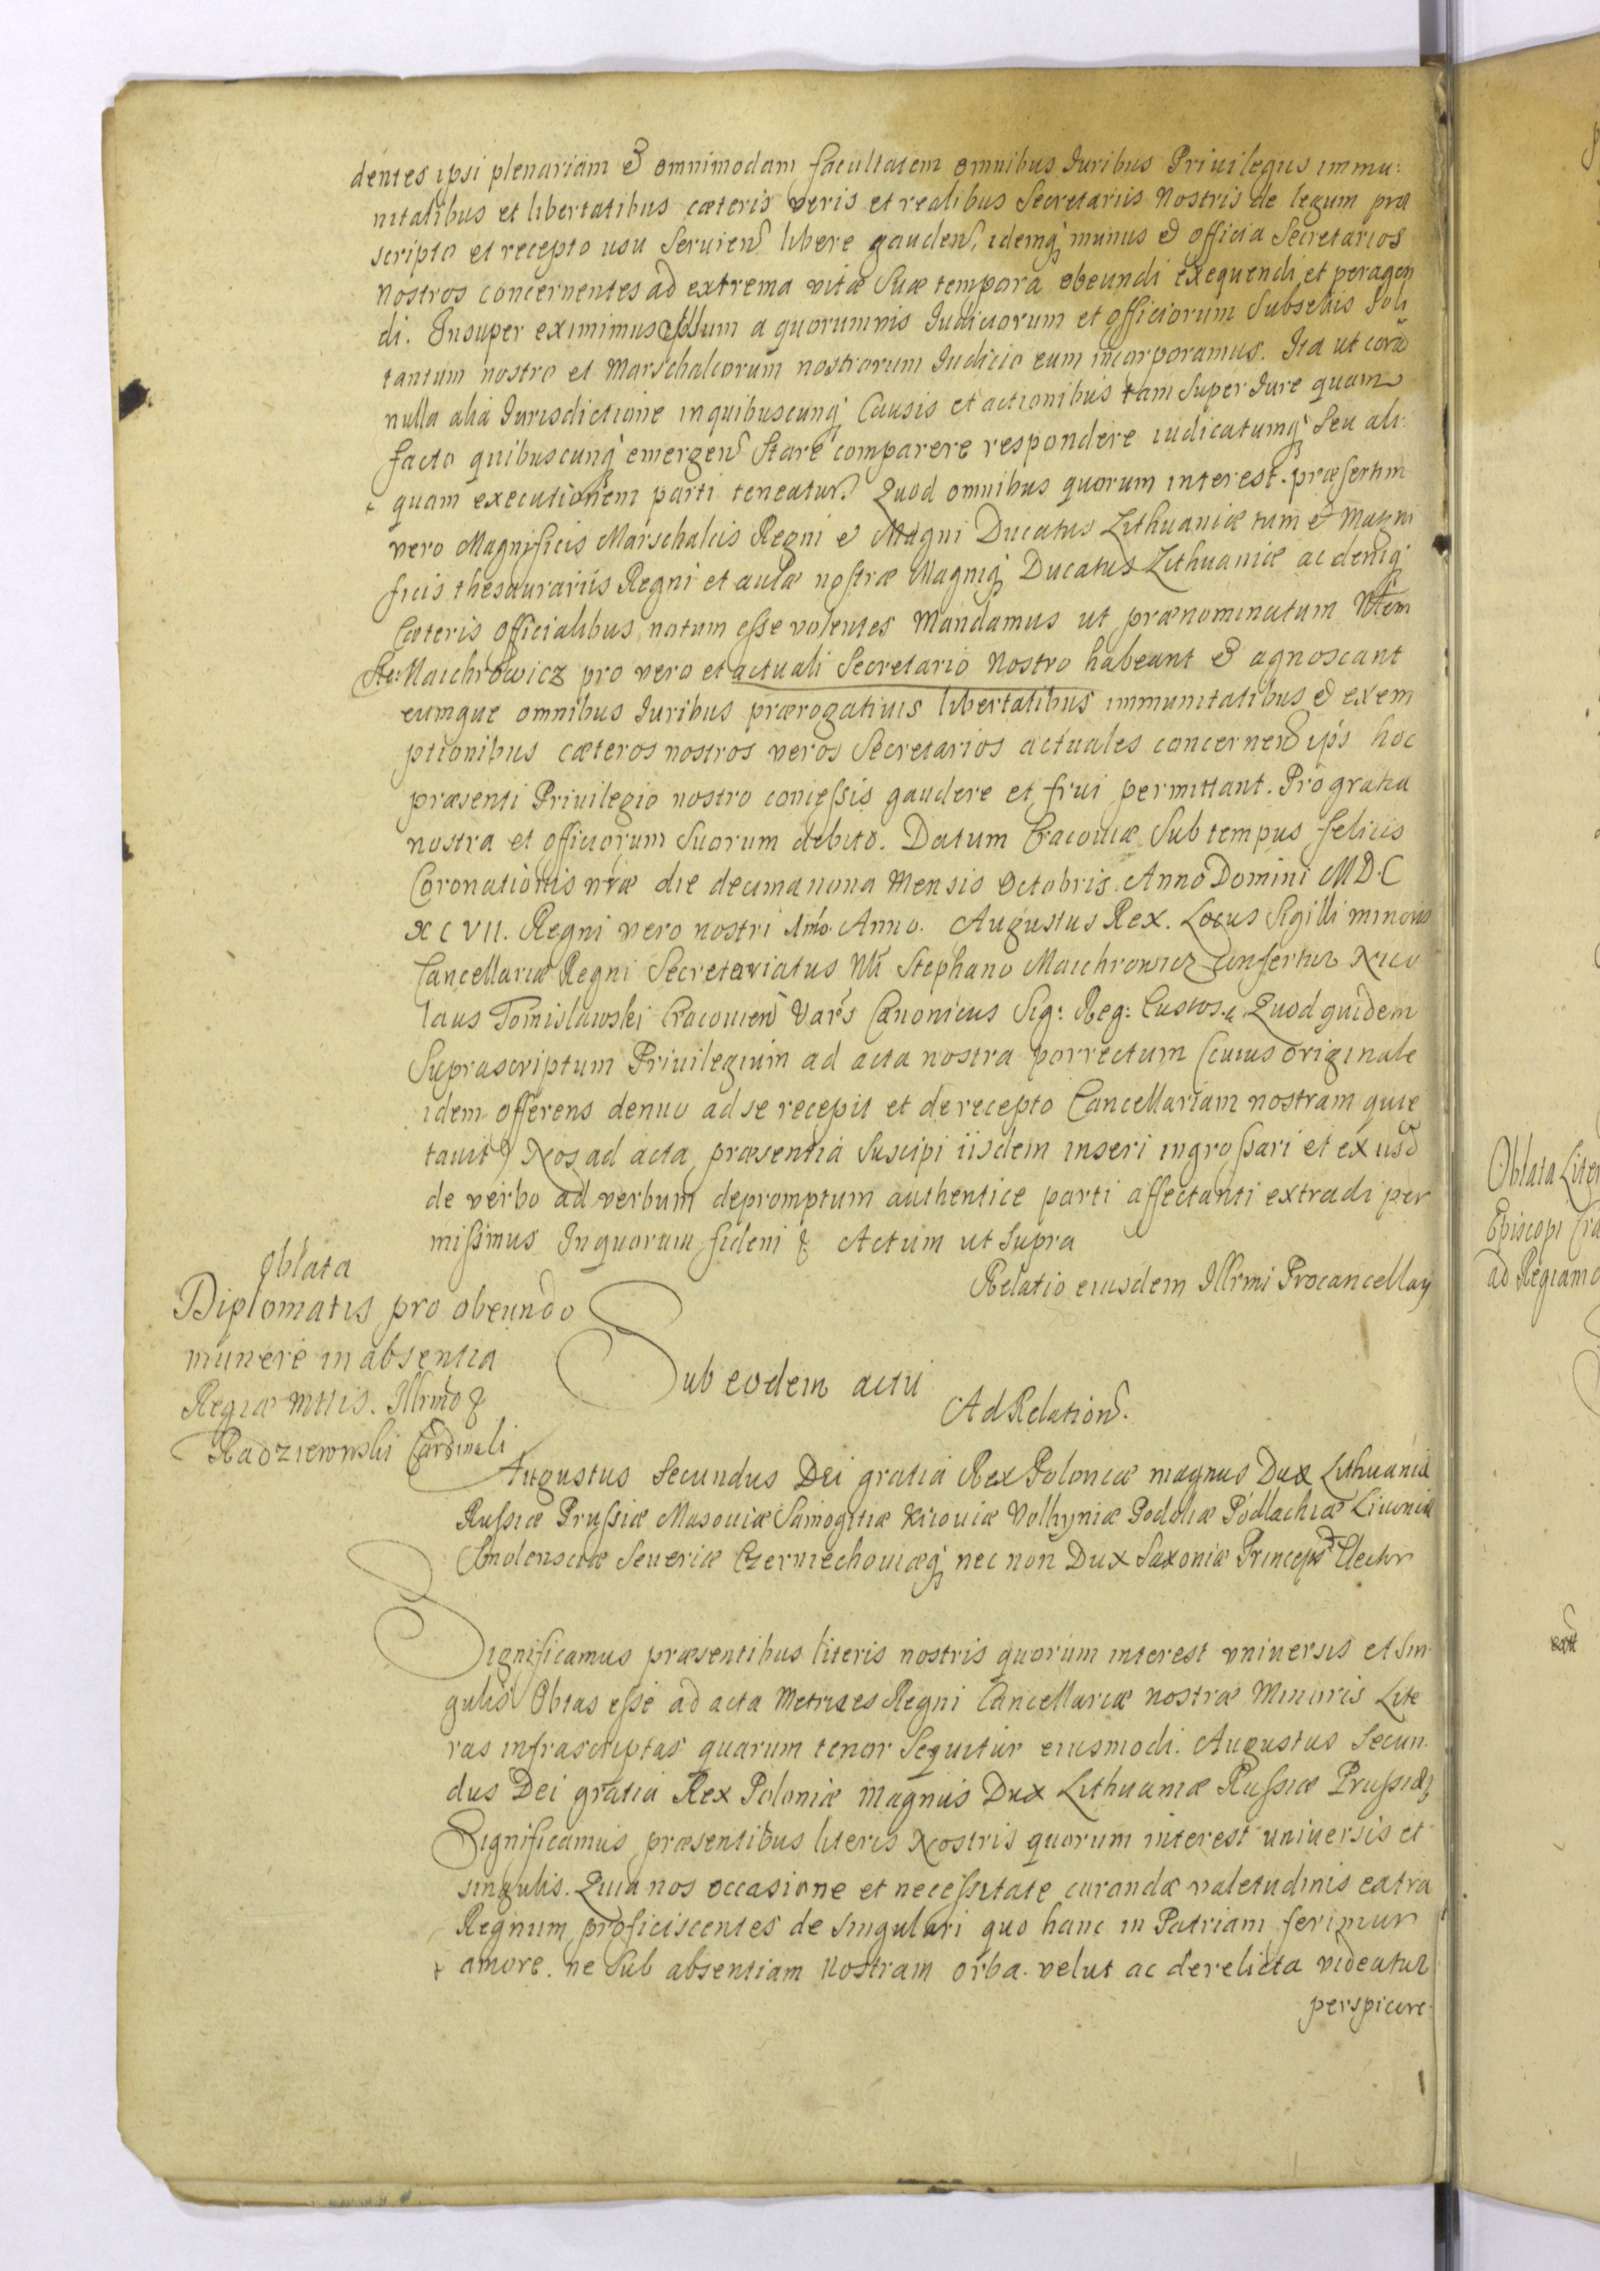 dentes ipsi plenariam et omnimodam facultatem omnibus Juribus Privilegiis immu:
nitatibus et libertatibus cæteris veris et realibus Secretariis Nostris de legum præ
scripto et recepto usu Servien libere gauden, idemq munus et officia Secretarios
Nostros concernentes ad extrema vitæ Suæ tempora obeundi exequendi et peragen
di. Insuper eximimus Ipsum a quorumvis Judiciorum et officiorum Subselliis Soli
tantum nostro et Marschalcorum nostrorum Judicio eum incorporamus. Ita ut corã
nulla alia Jurisdictione in quibuscunq Causis et actionibus tam Super Jure quam
facto quibuscunq emergen Stare comparere respondere iudicatumq Seu ali:
quam executionem parti teneatur. Quod omnibus quorum interest. præsertim
vero Magnificis Marschalcis Regni et Magni Ducatus Lithuaniæ tum et Magni
ficis thesaurariis Regni et aulæ nostræ Magniq Ducatus Lithuaniæ ac deniq
Cæteris Officialibus notum esse volentes Mandamus ut prænominatum Nblem
Ste: Maichrowicz pro vero et actuali Secretario Nostro habeant et agnoscant
eumque omnibus Juribus prærogativis libertatibus immunitatibus et exem
ptionibus cæteros nostros veros Secretarios actuales concernen ips hoc
præsenti Privilegio nostro concessis gaudere et frui permittant. Pro gratia
nostra et officiorum Suorum debito. Datum Cracoviæ Sub tempus felicis
Coronationis nræ die decima nona Mensis Octobris. Anno Domini MDC
XCVII. Regni vero nostri Imo Anno. Augustus Rex. Locus Sigilli minoris
Cancellariæ Regni Secretariatus Nli Stephano Maichrowicz Confertur Nico
laus Tomislawski Cracovien Vars Canonicus Sig: Reg: Custos. Quod quidem
Suprascriptum Privilegium ad acta nostra porrectum (cuius originale
idem offerens denuo ad se recepit et de recepto Cancellariam nostram quie
tavit) Nos ad acta præsentia Suscipi iisdem inseri ingrossari et ex iisd
de verbo ad verbum depromptum authentice parti affectanti extradi per
missimus In quorum fidem & Actum ut Supra
Relatio eiusdem Illrmi Procancellarj
Oblata
Diplomatis pro obeundo
munere in absentia
Regiæ Mttis. Illrmo &
Radzieiowski Cardinali
Sub eodem actu
Ad Relation.
Augustus Secundus Dei gratia Rex Poloniæ magnus Dux Lithuaniæ
Russiæ Prussiæ Masoviæ Samogitiæ Kiioviæ Volhyniæ Podoliæ Podlachiæ Livoniæ
Smolensciæ Severiæ Czerniechoviæq nec non Dux Saxoniæ Princeps Elector
Significamus præsentibus literis nostris quorum interest universis et Sin
gulis Obtas esse ad acta Metrices Regni Cancellariæ nostræ Minoris Lite
ras infrascriptas quarum tenor Sequitur eiusmodi. Augustus Secun
dus Dei gratia Rex Poloniæ Magnus Dux Lithuaniæ Russiæ Prussiæ &
Significamus præsentibus literis Nostris quorum interest universis et
singulis. Quia nos occasione et necessitate curandæ valetudinis extra
Regnum proficiscentes de singulari quo hanc in Patriam ferimur
amore. ne Sub absentiam Nostram orba velut ac derelicta videatur
perspicere
Oblata Liter
Episcopi Cra
ad Regiam